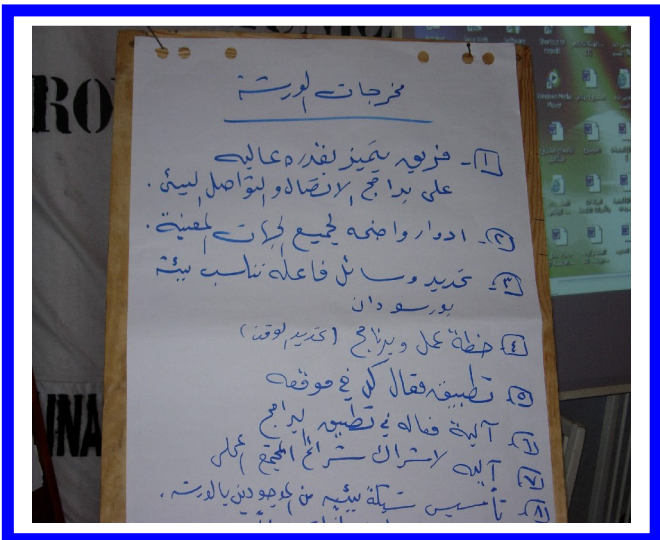 مخرجات الورشة
١- فريق يتميز بقدره عاليه
على برامج الاتصال والتواصل البيئى .
٢- ادوار واضحه لجميع الجهات المعنية .
٣- تحديد وسائل فاعله تناسب بيئة
بورسودان
٤ خطة عمل وبرنامج (تحديد الوقت)
٥ تطبيق فعال كل في موقعه
٦ آلية فعاله في تطبيق البرامج
٧ آليه لاشراك شرائح المجتمع المحلى
٨ تأسيس شبكة بيئيه من الموجودين بالورشه .
RO
INA